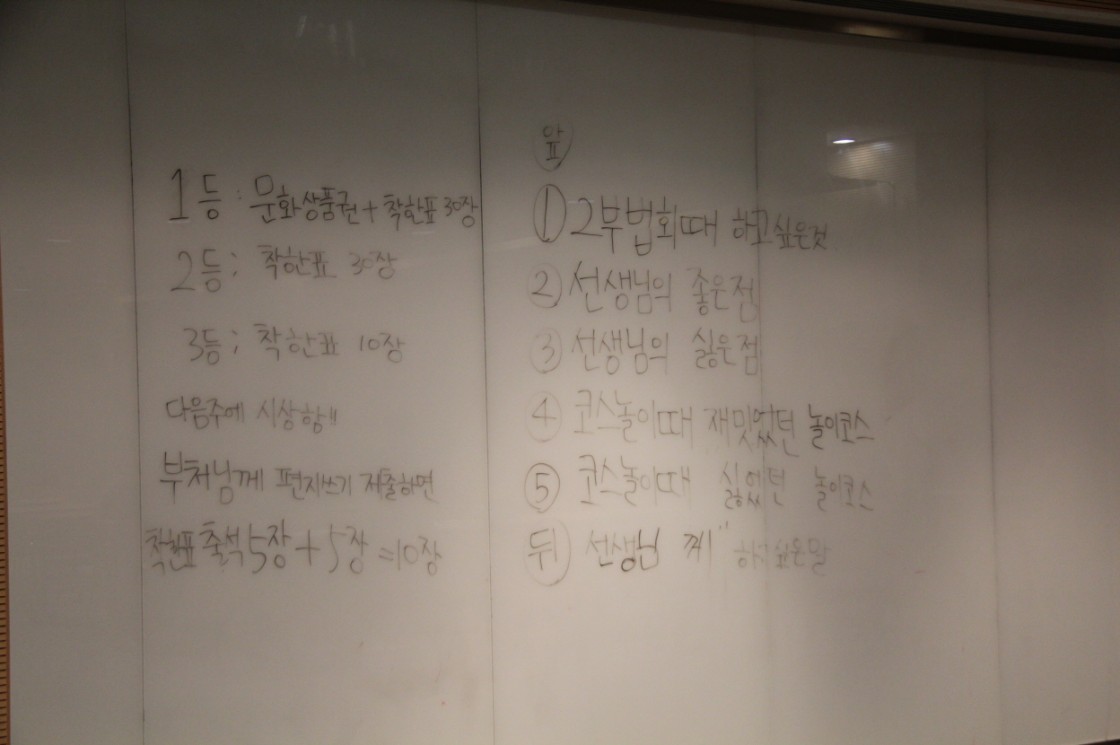 1등 : 문화상품권 + 착한표 30장
2등 ; 착한표 30장
3등 ; 착한표 10장
다음주에 시상함!!
부처님께 편지쓰기 제출하면
착한표 출석 5장 + 5장 = 10장
앞
① 2부법회때 하고싶은것
② 선생님의 좋은점
③ 선생님의 싫은점
④ 코스놀이때 재밋었던 놀이코스
⑤ 코스놀이때 싫었던 놀이코스
뒤 선생님 께" 하고싶은말